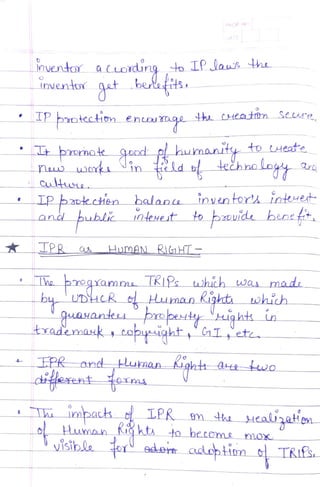 inventor according to IP laws the
inventor get benefits.
• IP protection encourage the creation secure
• It promote good of humanity to create
new works in field of technology and
culture.
• IP protection balance inventor's interest
and public interest to provide benefit.
★ IPR as HUMAN RIGHT -
• The programme TRIPs which was made
by UDHCR of Human Rights which
guarantees property rights in
trademark, copyright, GI, etc.
• IPR and Human Rights are two
different forms
• The impacts of IPR on the realization
of Human Rights to become more
visible for adoption of TRIPs.